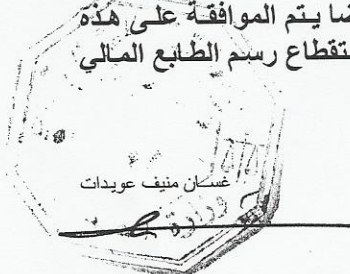 ضا يتم الموافقة على هذه
ستقطاع رسم الطابع المالي
غسان منيف عويدات
وزارة